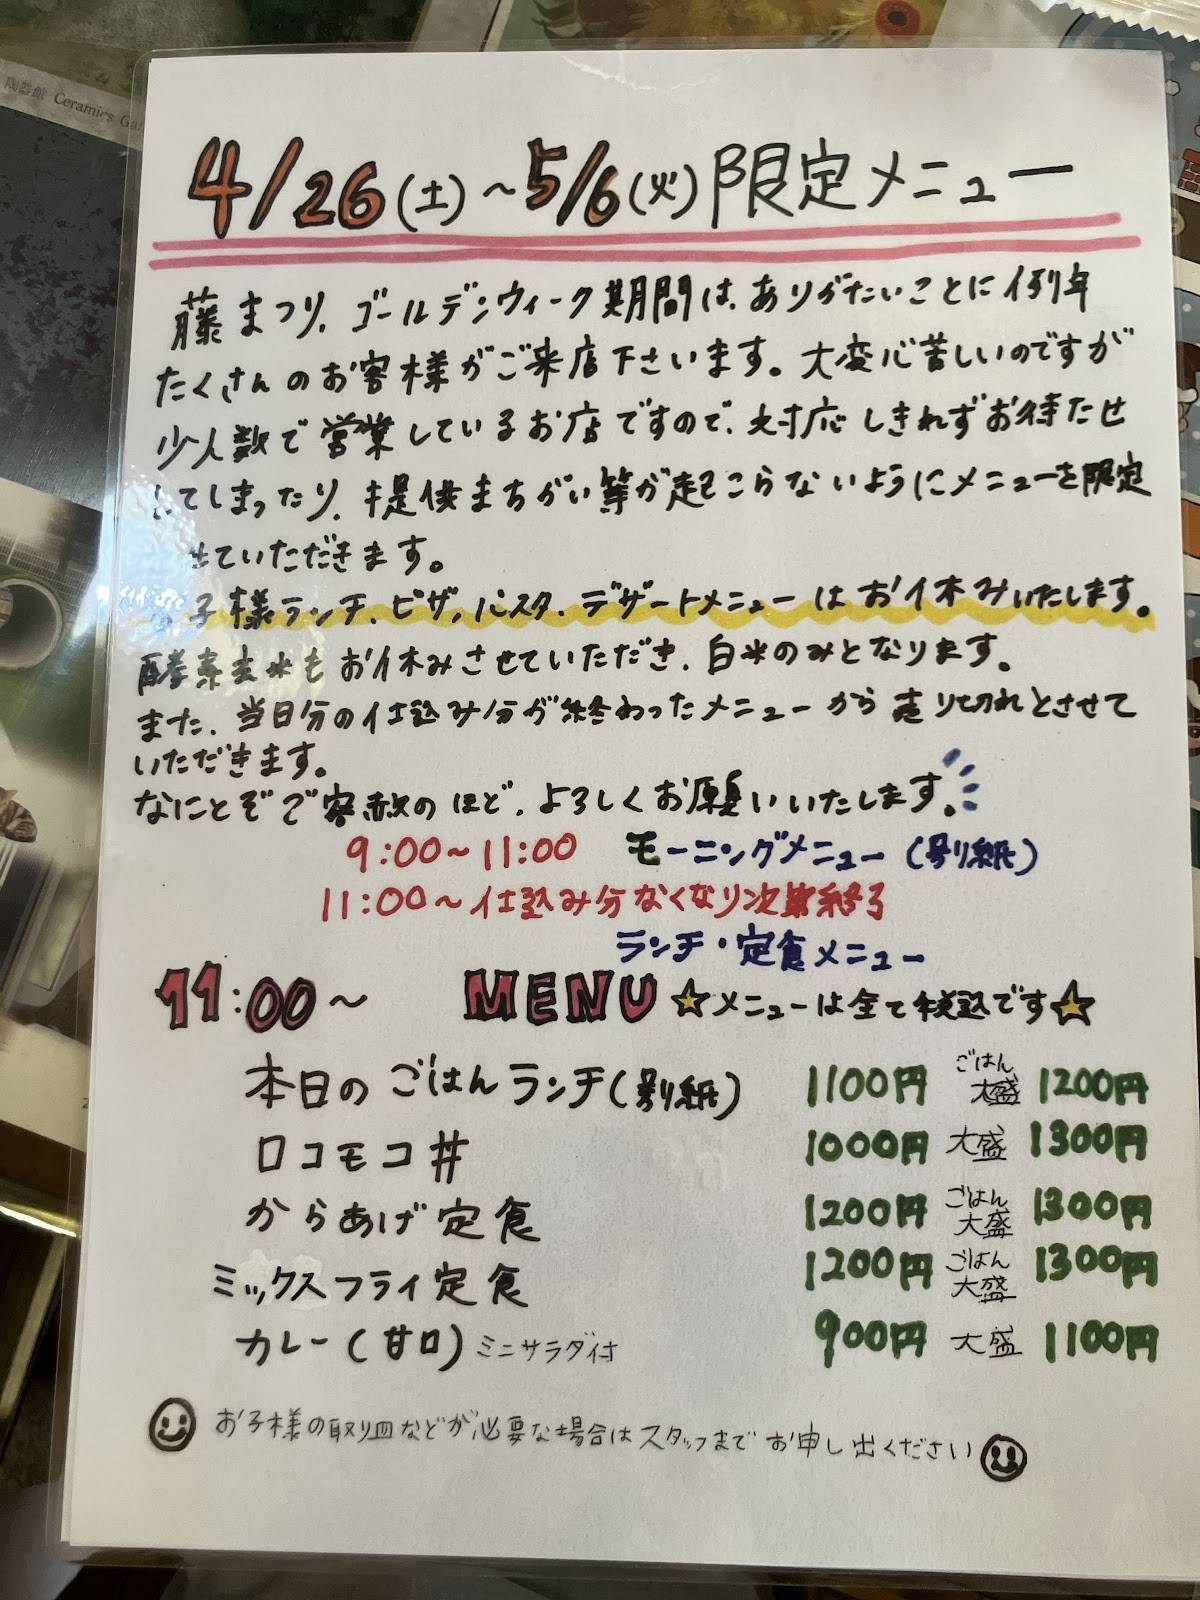 陶器館 Ceramics Ga
4/26(土)~5/6(火)限定メニュー
藤まつり、ゴールデンウィーク期間は、ありがたいことに例年
たくさんのお客様がご来店下さいます。大変心苦しいのですが
少人数で営業しているお店ですので、対応しきれずお待たせ
してしまったり、提供まちがい等が起こらないようにメニューを限定
せていただきます。
子様ランチ、ピザ、パスタ、デザートメニューはお休みいたします。
酵素玄米もお休みさせていただき、白米のみとなります。
また、当日分の仕込み分が終わったメニューから売り切れとさせて
いただきます。
なにとぞご容赦のほど、よろしくお願いいたします。
9:00~11:00 モーニングメニュー(別紙)
11:00~仕込み分なくなり次第終了
ランチ・定食メニュー
11:00~ MENU ☆メニューは全て税込です☆
本日のごはんランチ(別紙) 1100円 ごはん大盛 1200円
ロコモコ丼 1000円 大盛 1300円
からあげ定食 1200円 ごはん大盛 1300円
ミックスフライ定食 1200円 ごはん大盛 1300円
カレー(甘口)ミニサラダ付 900円 大盛 1100円
お子様の取り皿などが必要な場合はスタッフまでお申し出ください